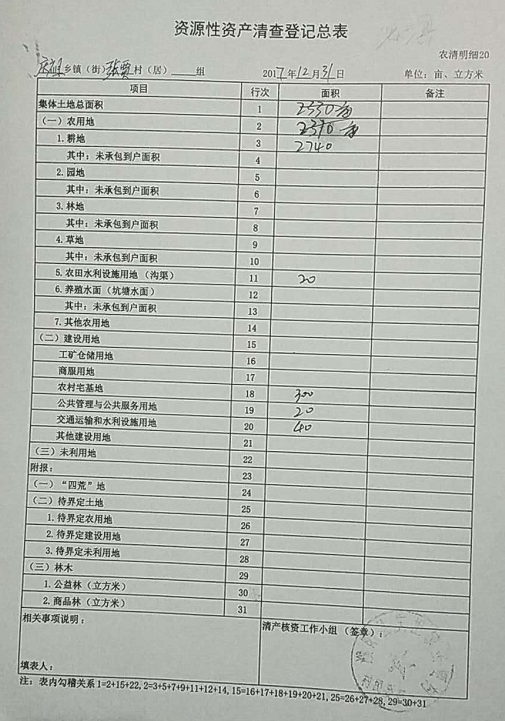 资源性资产清查登记总表
农清明细20
乡镇（街） 村（居）____组 2017年12月31日 单位：亩、立方米
项目 行次 面积 备注
集体土地总面积 1
（一）农用地 2
1.耕地 3 2740
其中：未承包到户面积 4
2.园地 5
其中：未承包到户面积 6
3.林地 7
其中：未承包到户面积 8
4.草地 9
其中：未承包到户面积 10
5.农田水利设施用地（沟渠） 11 20
6.养殖水面（坑塘水面） 12
其中：未承包到户面积 13
7.其他农用地 14
（二）建设用地 15
工矿仓储用地 16
商服用地 17
农村宅基地 18 300
公共管理与公共服务用地 19 20
交通运输和水利设施用地 20 40
其他建设用地 21
（三）未利用地 22
附报： 23
（一）“四荒”地 24
（二）待界定土地 25
1.待界定农用地 26
2.待界定建设用地 27
3.待界定未利用地 28
（三）林木 29
1.公益林（立方米） 30
2.商品林（立方米） 31
相关事项说明： 清产核资工作小组（签章）：
填表人：
注：表内勾稽关系1=2+15+22,2=3+5+7+9+11+12+14,15=16+17+18+19+20+21,25=26+27+28,29=30+31